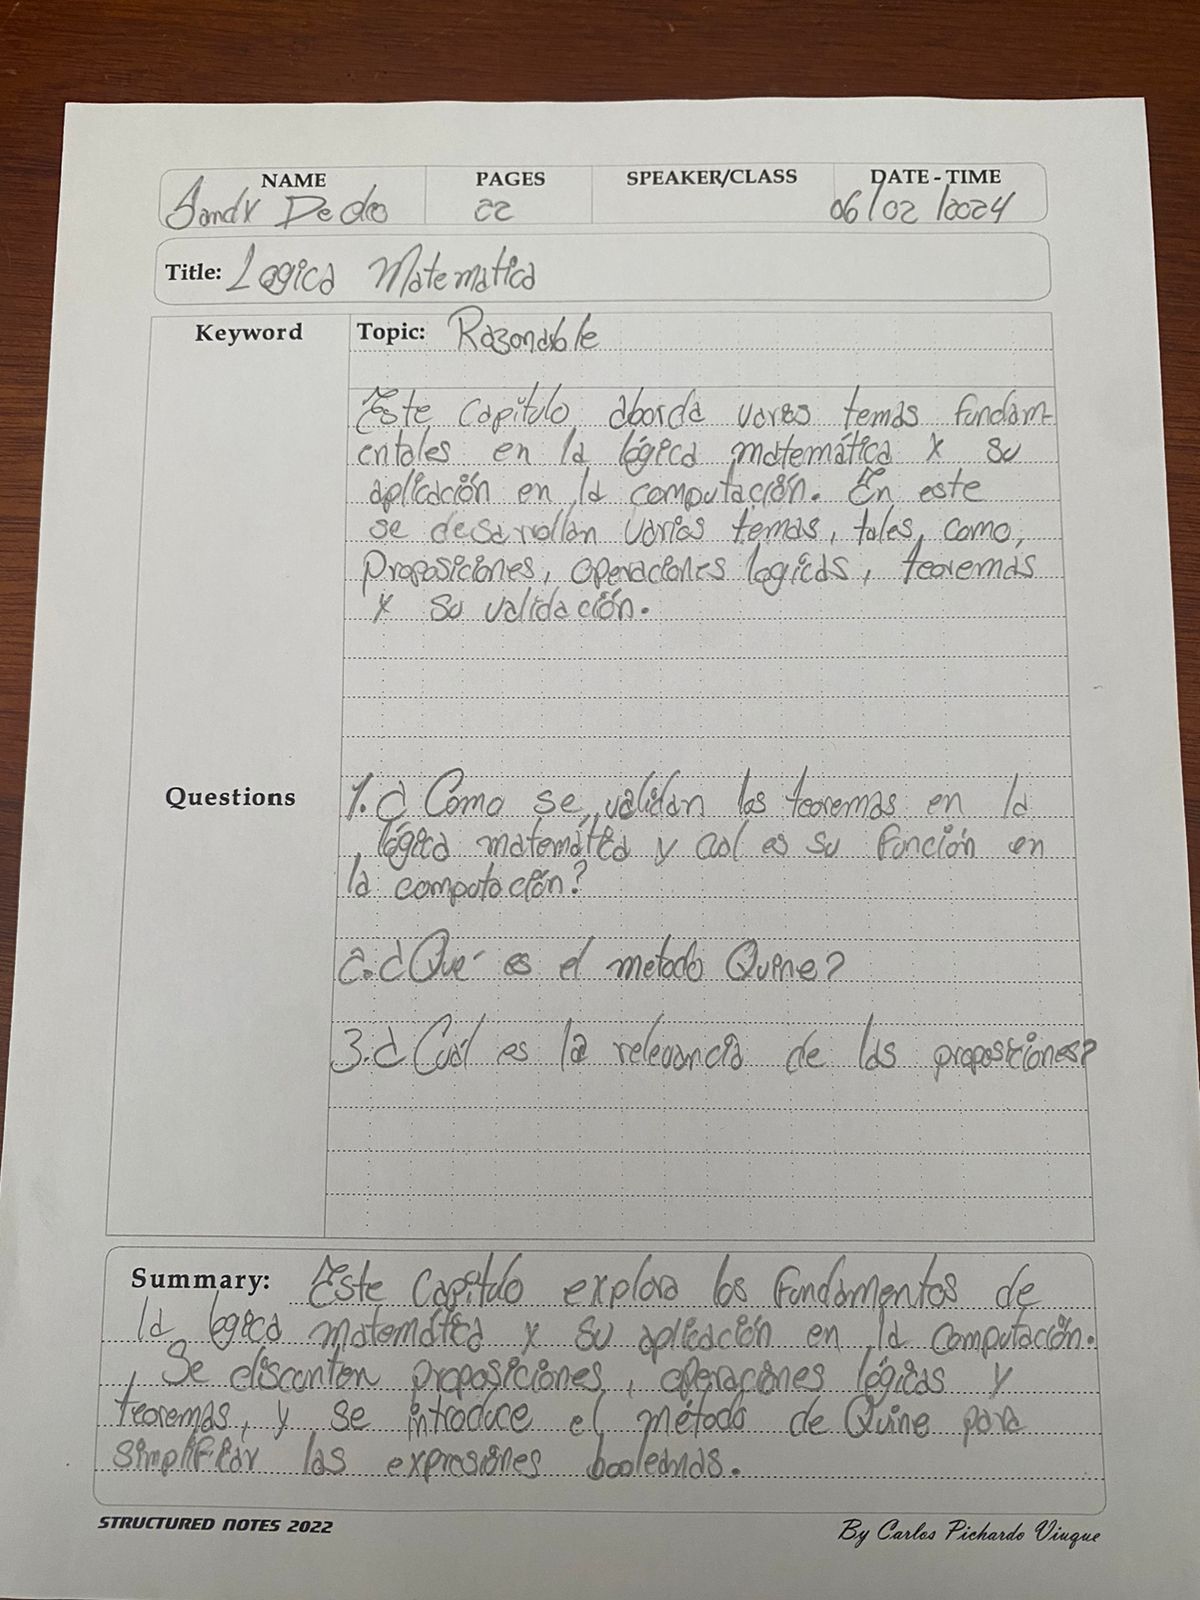 NAME PAGES SPEAKER/CLASS DATE - TIME
Sandy De 22 06/02/2024
Title: Logica Matematica
Keyword Topic: Razonable
Este Capitulo aborda vares temas fundam-
entales en la lógica matemática y su
aplicación en la computación. En este
se desarrollan varios temas, tales, como,
Proposiciones, operaciones logicas, teoremas
y su validación.
Questions 1. ¿Como se validan los teoremas en la
lógica matemática y cual es su función en
la computación?
2. ¿Qué es el metodo Quine?
3. ¿Cuál es la relevancia de las proposiciones?
Summary: Este Capitulo explora los fundamentos de
la logica matemática y su aplicación en la computación.
Se discanten proposiciones, operaciones lógicas y
teoremas, y se introduce el método de Quine para
simplificar las expresiones booleanas.
STRUCTURED NOTES 2022 By Carlos Pichardo Viuque